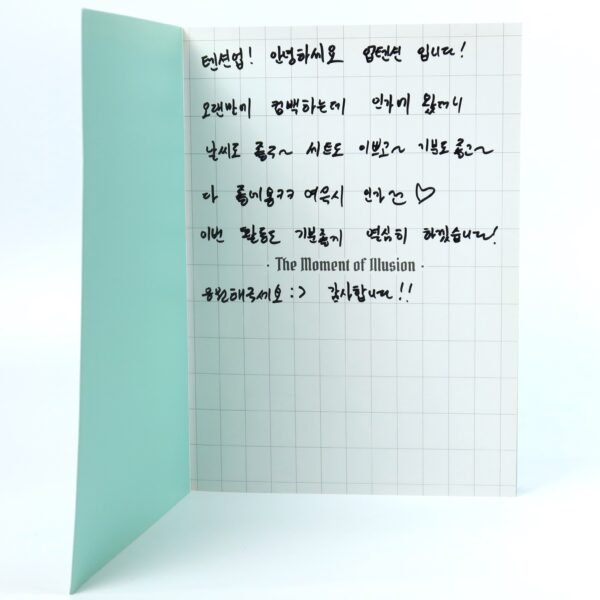 텐션업! 안녕하세요 업텐션 입니다!
오랜만에 컴백하는데 인가에 왔더니
날씨도 좋구~ 세트도 이쁘고~ 기분도 좋고~
다 좋네용ㅋㅋ 여윽시 인가는 ♡
이번 활동도 기분좋게 열심히 하겠습니다!
· The Moment of Illusion ·
응원해주세요 :> 감사합니다!!